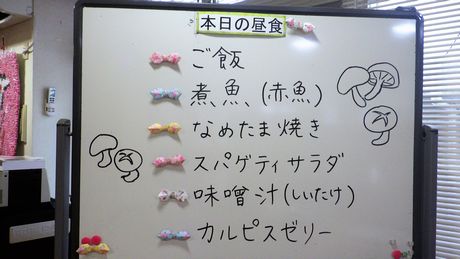 本日の昼食
ご飯
煮魚(赤魚)
なめたま焼き
スパゲティサラダ
味噌汁(しいたけ)
カルピスゼリー